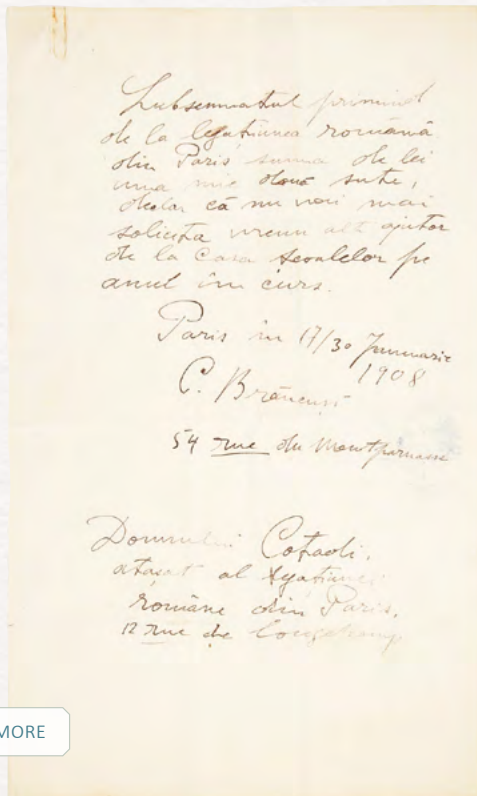 Subsemnatul primind
de la legațiunea română
din Paris, suma de lei
una mie două sute,
declar că nu voi mai
solicita vreun alt ajutor
de la Casa Școalelor pe
anul în curs.
Paris în 17/30 Januarie
1908
C. Brâncuși
54 rue du Montparnasse
Domnului Coțadi,
atașat al legațiunei
române din Paris.
12 rue de Longchamp
MORE